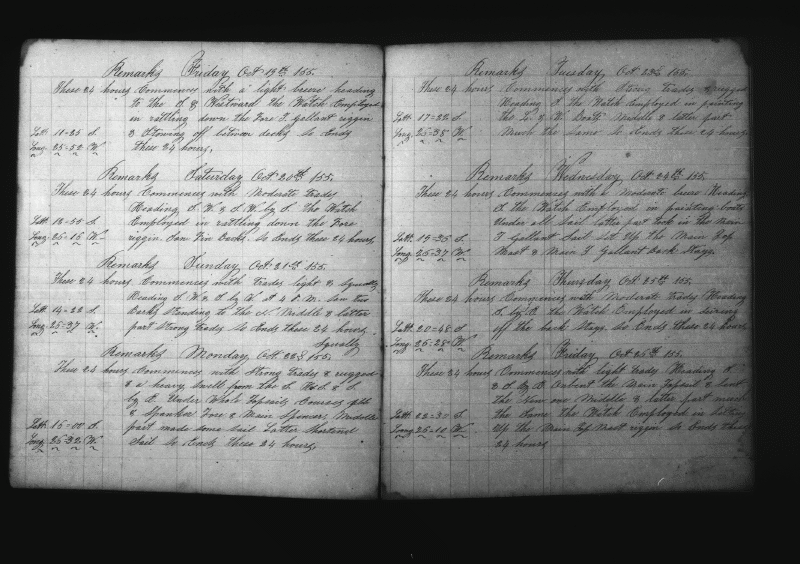 Remarks Friday Oct 19th 155.
These 24 hours Commences with a light breese heading
to the S & Westward the Watch Employed
in rattling down the Fore T. gallant riggin
& Stowing off between decks So Ends
these 24 hours.
Latt
Long 25-52 W.
Remarks Saturday Oct 20th 155.
These 24 hours Commences with Moderate trades
Heading S. W. & S. W. by S. the Watch
Employed in rattling down the Fore
riggin So Ends these 24 hours
Latt
Long W
Remarks Sunday, Oct. 21st 155.
These 24 hours Commences with trades light & Squally
Heading S. W & S by W at 4 P. M. Saw two
Barks Standing to the N Middle & latter
part Strong trades So Ends these 24 hours
Squally
Latt 14-22 S
Long 25-37 W.
Remarks Monday, Oct. 22d 155.
These 24 hours Commences with Strong trades & rugged
& a heavy Swell from the S.
by S. Under Topsails, Courses Jib
& Spanker Fore & Main Spencer, Middle
part made some Sail Latter Shortend
Sail So Ends these 24 hours,
Latt 15-00 S
Long 25-32 W.
Remarks Tuesday, Oct 23d 155.
These 24 hours Commences with Strong trades & rugged
Heading S the Watch Employed in painting
the Boat Middle & latter part
Much the Same So Ends these 24 hours
Latt 17-22 S
Long 25-35 W.
Remarks Wednesday, Oct 24th 155.
These 24 hours Commences with a Moderate breese Heading
S. the Watch Employed in painting boats
Under all Sail latter part took in the Main
T Gallant Sail Set Up the Main Top
Mast & Main T Gallant back Stays.
Latt. S
Long 25-37 W.
Remarks Thursday Oct 25th 155.
These 24 hours Commences with Moderate trades Heading
S. by the Watch Employed in
off the back Stays So Ends these 24 hours
Latt. 20-45 S
Long 25-25 W.
Remarks Friday, Oct 26th 155.
These 24 hours Commences with light trades Heading S
& S. by unbent the Main Topsail & bent
the New one Middle & latter part much
the Same the Watch Employed in
Up the Main Top Mast riggin So Ends these
24 hours
Latt 22-30 S
Long 25-10 W.